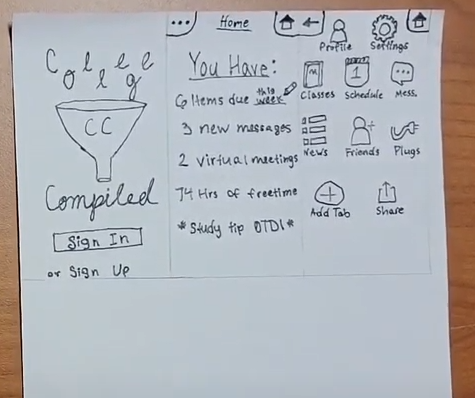 College
CC
Compiled
Sign In
or Sign Up
Home
You Have:
6 Items due this week
3 new messages
2 virtual meetings
74 Hrs of freetime
*Study tip OTD!*
Profile
Settings
Classes
1
Schedule
Mess.
News
Friends
Plugs
Add Tab
Share